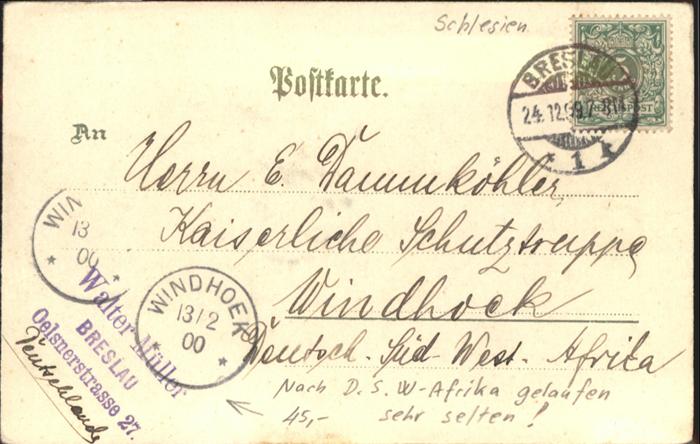 Schlesien
Postkarte.
BRESLAU
24.12.99.7-8N.
REICHSPOST
* 1 k
An
Herrn E. Dammköhler,
Kaiserliche Schutztruppe
Windhoek
Deutsch-Süd-West-Afrika
WIN
13
00
WINDHOEK
13/2
00
Walter Müller
BRESLAU
Oelsnerstrasse 27.
Deutschland
Nach D.S.W-Afrika gelaufen
45,- sehr selten!